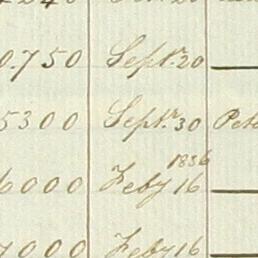 0.750 Septr. 20
5300 Septr. 30 Pete
1836
6000 Feby 16
7000 Feby 16